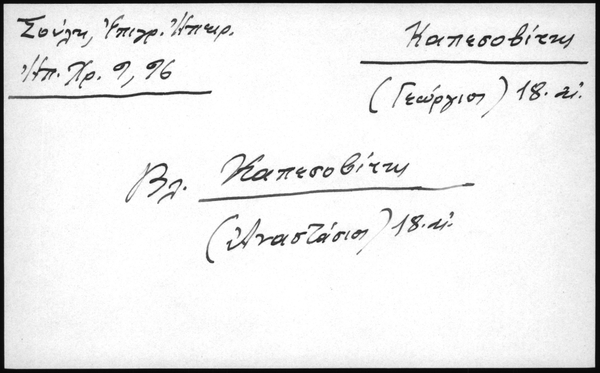 Σούλη, Ἐπιγρ. Ἠπειρ.
Ἠπ. Χρ. 9, 96
Καπεσοβίτης
(Γεώργιος) 18. αἰ.
Βλ. Καπεσοβίτης
(Ἀναστάσιος) 18. αἰ.